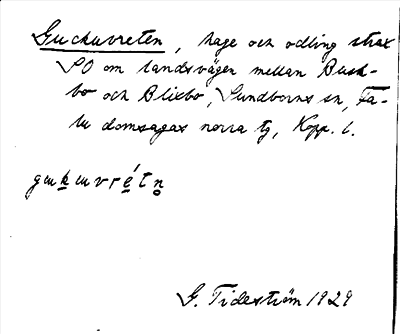 Guckuvreten, hage och odling strax
SO om landsvägen mellan Busk-
bo och Blixbo, Sundborns sn, Fa-
lu domsagas norra tg, Kopp. l.
gukuvrétn̥
G. Tideström 1929